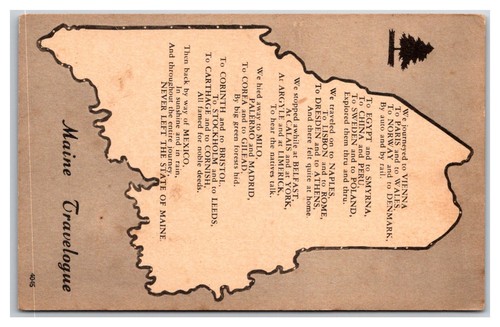 We journeyed to VIENNA
To PARIS and to WALES,
To NORWAY and to DENMARK,
By auto and by rail.
To EGYPT and to SMYRNA,
To CHINA and PERU,
To SWEDEN and to POLAND,
Explored them thru and thru.
We traveled on to NAPLES,
To LISBON and to ROME,
To DRESDEN and to ATHENS,
And there felt quite at home.
We stopped awhile at BELFAST,
At CALAIS and at YORK,
At ARGYLE and at LIMERICK,
To hear the natives talk.
We hied away to MILO,
To PALERMO and MADRID,
To CORFA and to GILEAD,
By big green forests hid.
To CORINTH and to BRISTOL,
To STOCKHOLM and to LEEDS,
To CARTHAGE and to CORNISH,
All famed for valiant deeds.
Then back by way of MEXICO,
In sunshine and in rain,
And throughout the entire journey,
NEVER LEFT THE STATE OF MAINE.
Maine Travelogue
4045